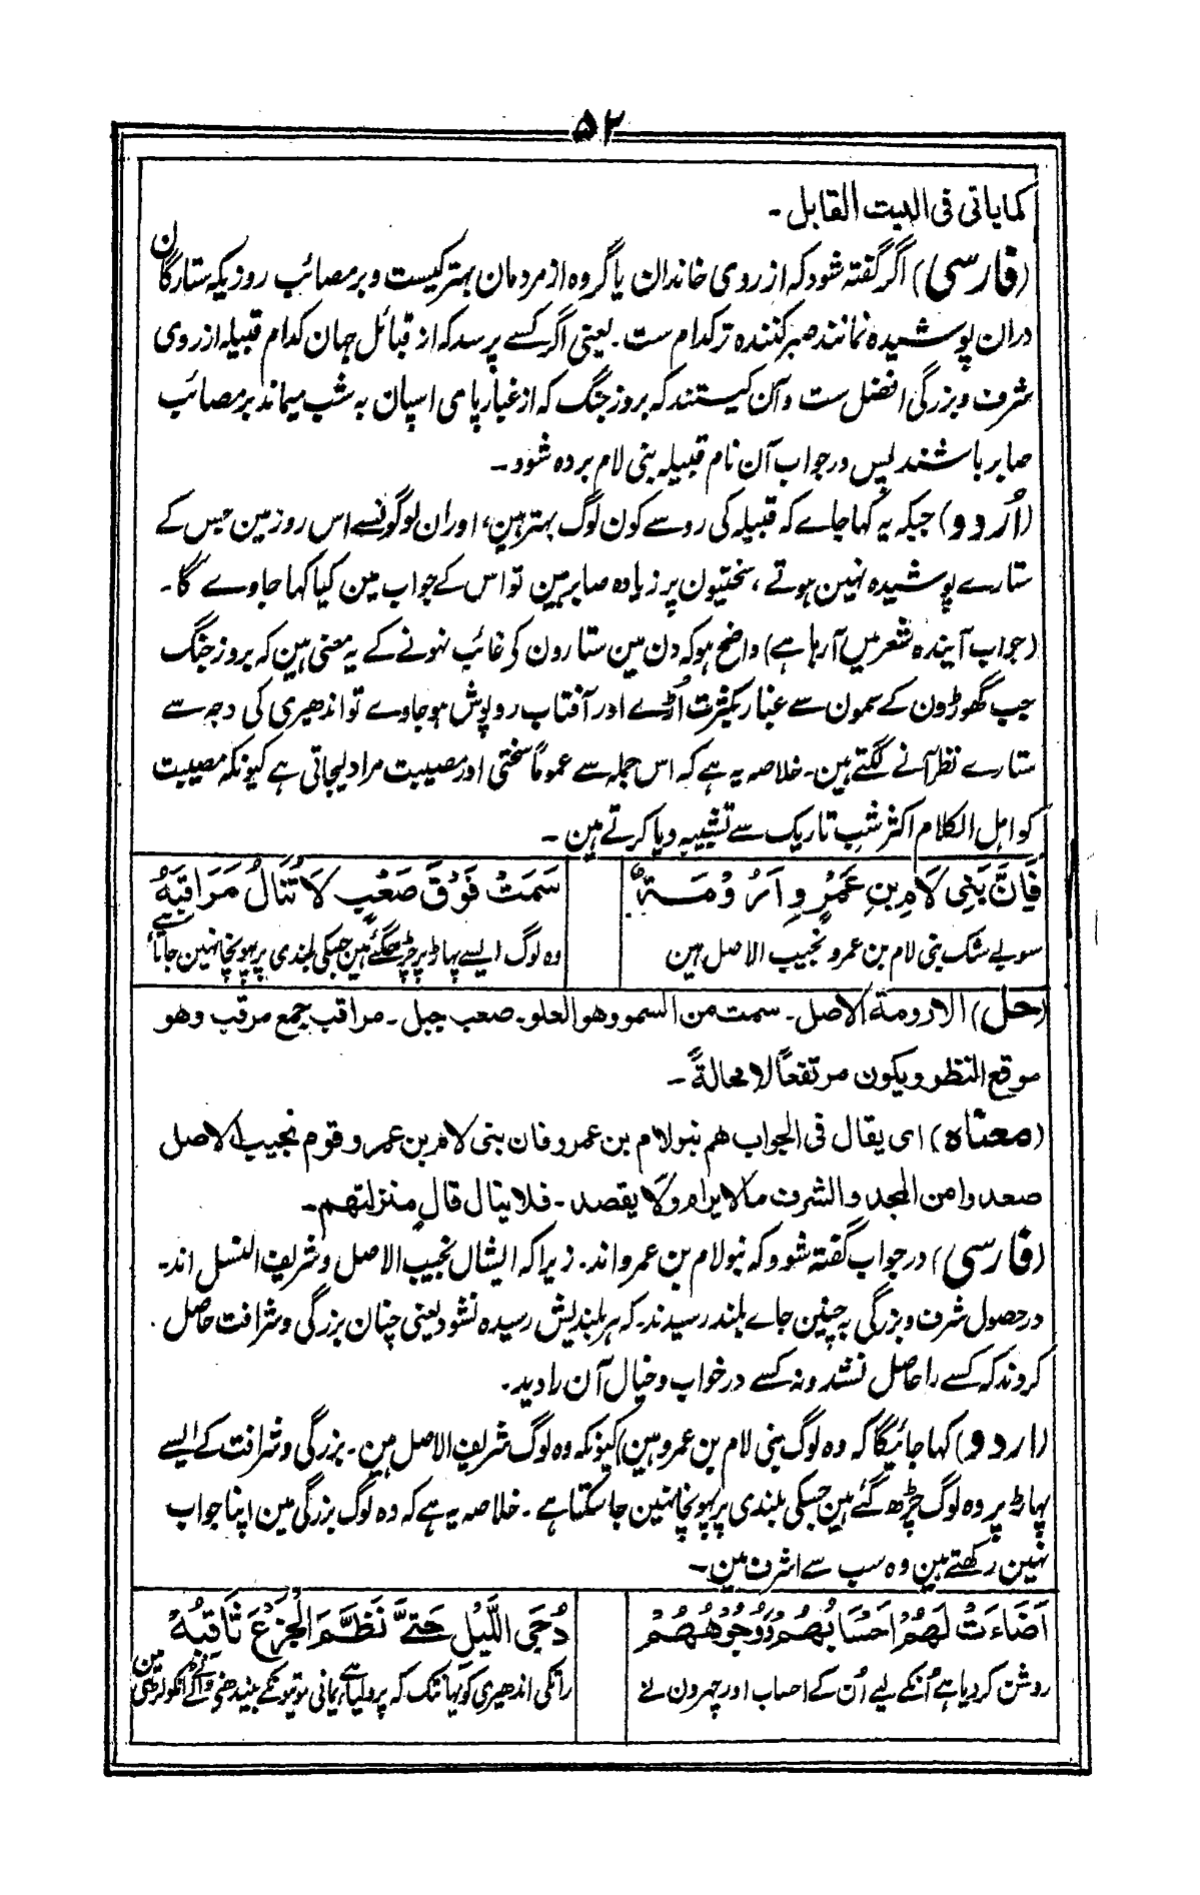 ۵۲
کمایاتی فی البیت القابل۔
(فارسی) اگر گفته شود که از روی خاندان یا گروه از مردمان بهتر کیست و بر مصائب روزیکه ستارگان
دران پوشیده نمانند صبر کننده تر کدام ست۔ یعنی اگر کسے پرسد که از قبائل جهان کدام قبیله از روی
شرف و بزرگی افضل ست و آن کیستند که بروز جنگ که از غبار پای اسپان به شب میماند بر مصائب
صابر باشند پس در جواب آن نام قبیله بنی لام برده شود۔
(اُردو) جبکہ یہ کہا جاے کہ قبیلہ کی رو سے کون لوگ بہتر ہین، اور ان لوگونسے اس روز مین جس کے
ستارے پوشیدہ نہین ہوتے، سختیون پر زیادہ صابر ہین تو اس کے جواب مین کیا کہا جاوے گا۔
(جواب آیندہ شعر میں آرہا ہے) واضح ہو کہ دن مین ستارون کی غائب نہونے کے یہ معنی ہین کہ بروز جنگ
جب گھوڑون کے سمون سے غبار بکثرت اُڑے اور آفتاب روپوش ہوجاوے تو اندھیری کی وجہ سے
ستارے نظر آنے لگتے ہین۔ خلاصہ یہ ہے کہ اس جملہ سے عموماً سختی اور مصیبت مراد لیجاتی ہے کیونکہ مصیبت
کو اہل الکلام اکثر شب تاریک سے تشبیہ دیا کرتے ہین۔
فَاِنَّ بَنِی لَامِ بنِ عَمْرٍو اَرُوْمَةٌ سَمَتْ فَوْقَ صَعْبٍ لَا تُنَالُ مَرَاقِبُهُ
سو بے شک بنی لام بن عمرو نجیب الاصل ہین وہ لوگ ایسے پہاڑ پر چڑھ گئے ہین جسکی بلندی پر پہونچا نہین جاتا ہے
(حل) الارومة الاصل۔ سمت من السمو وهو العلو۔ صعب جبل۔ مراقب جمع مرقب وهو
موقع النظر ویکون مرتفعاً لا محالةً۔
(معناه) ای یقال فی الجواب هم بنو لام بن عمرو فان بنی لام بن عمرو قوم نجیب الاصل
صعدوا من المجد والشرف ما لا یرام ولا یقصد۔ فلا ینال قالٍ منزلتهم۔
(فارسی) در جواب گفته شود که بنو لام بن عمرو اند۔ زیرا که ایشان نجیب الاصل و شریف النسل اند۔
در حصول شرف و بزرگی به چنین جاے بلند رسیدند۔ که بر بلندیش رسیده نشود یعنی چنان بزرگی و شرافت حاصل
کردند که کسے را حاصل نشد و نه کسے در خواب و خیال آن را دید۔
(اردو) کہا جائیگا کہ وہ لوگ بنی لام بن عمرو ہین کیونکہ وہ لوگ شریف الاصل ہین۔ بزرگی و شرافت کے ایسے
پہاڑ پر وہ لوگ چڑھ گئے ہین جسکی بلندی پر پہونچا نہین جا سکتا ہے۔ خلاصہ یہ ہے کہ وہ لوگ بزرگی مین اپنا جواب
نہین رکھتے ہین وہ سب سے اشرف ہین۔
اَضَاءَتْ لَهُمْ اَحْسَابُهُمْ وَوُجُوْهُهُمْ دُجَی اللَّیْلِ حَتّٰی نَظَّمَ الْجَزْعَ ثَاقِبُهُ
روشن کردیا ہے اُنکے لیے اُن کے احساب اور چہرون نے راتکی اندھیری کو یہانتک کہ پرولیا ہے یمانی موتیونکے بیندھنے والے نے انکو لڑی مین